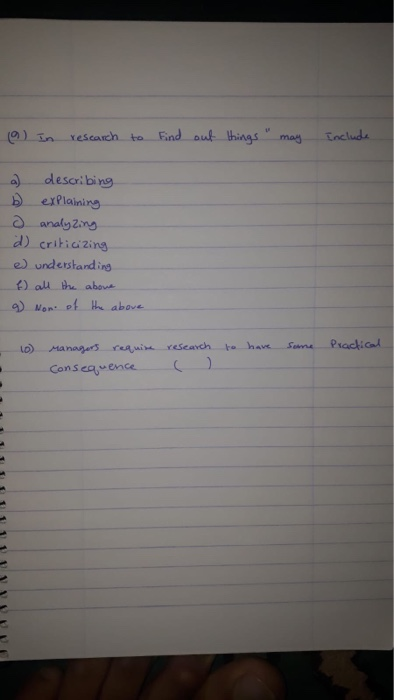 (9) In research to Find out things" may Include
a) describing
b) explaining
c) analyzing
d) criticizing
e) understanding
f) all the above
g) Non. of the above
10) Managers require research to have some Practical
Consequence ( )